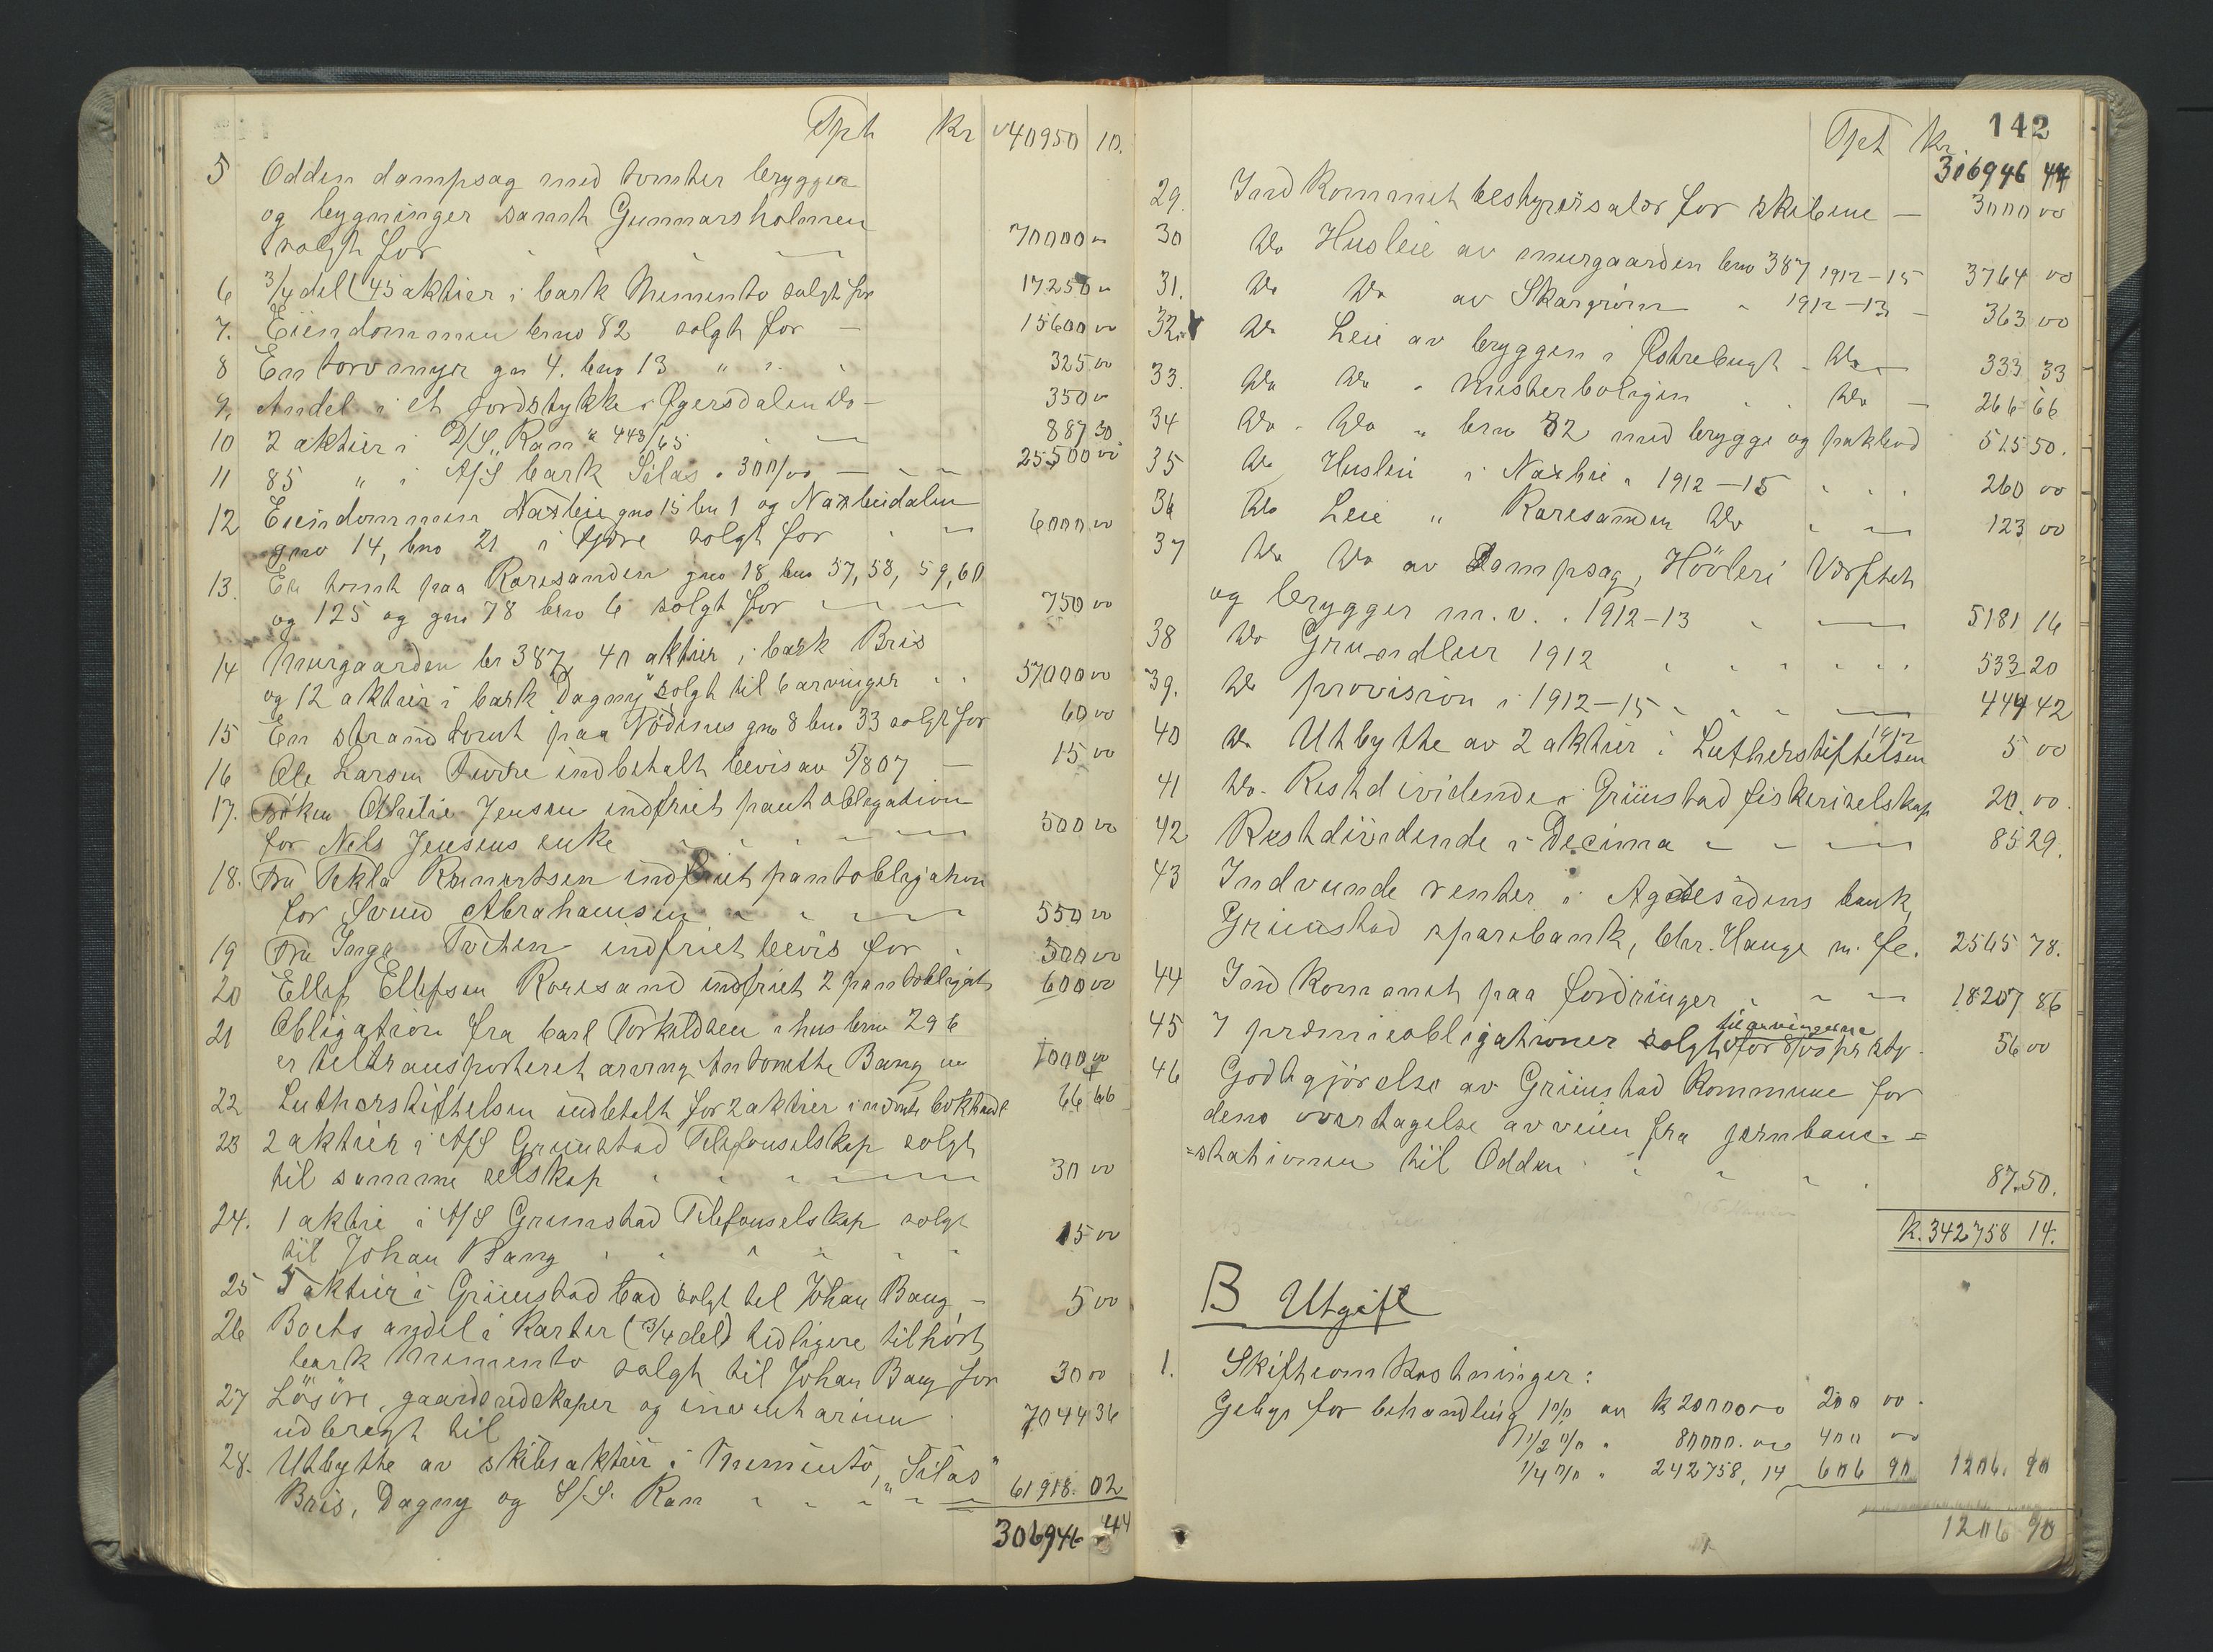 Tpt Kr 40950 10.
5 Odden dampsag med tomter brygger
og bygninger samt Gunnarsholmen
solgt for 70000 "
6 3/4 del (45 aktier i bark Memento solgt for 17250 "
7. Eiendommen bno 82 solgt for — 15600 00
8 En torvmyr gn 4. bno 13 " " 325 00
9. Andel i et jordstykke i Øgersdalen do — 350 "
10 2 aktier i D/S „Ran" a 443/65 887 30
11 85 " i A/S bark Silas a 300/00 — 25500 00
12 Eiendommen Naxbie gno 15 bn 1 og Naxbiedalen
gno 14, bno 21 i Fjære solgt for 6000 00
13. En tomt paa Roresanden gno 18 bno 57, 58, 59, 60
og 125 og gno 78 bno 6 solgt for 750 00
14 Murgaarden br 387, 40 aktier i bark Bris
og 12 aktier i bark "Dagny" solgt til barvinger 57000 00
15 En strandtomt paa Vödenes gno 8 bno 33 solgt for 60 00
16 Ole Larsen Furre indbetalt bevis av 5/807 — 15 00
17. Fröken Othilie Jensen indfriet pantobligation
for Nils Jensens enke 500 00
18. Fru Tekla Reinertsen indfriet pantobligation
for Svend Abrahamsen 550 00
19 Fru Inga Tveten indfriet bevis for 500 00
20 Ellef Ellefsen Roresand indfriet 2 pantobligat. 600 00
21 Obligation fra Carl Torkildsen i hus bno 296
er tiltransporteret arving Antonette Bang 1000 00
22 Lutherstiftelsen indbetalt for 2 aktier i indents bokhandl 66 66
23 2 aktier i A/S Grimstad Telefonselskap solgt
til samme selskap 30 00
24. 1 aktie i A/S Grimstad Telefonselskap solgt
til Johan Bang 15 00
25 5 aktier i Grimstad bad solgt til Johan Bang — 5 00
26 Boets andel i Karter (3/4 del) tidligere tilhört
bark Memento solgt til Johan Bang for 30 00
27 Lösöre, gaardsredskaper og inventarium
udbragt til 7044 36
28. Utbytte av skibsaktier i Memento, „Silas"
Bris, Dagny og S/S. Ran 61918. 02
306946 44
142
Tpt Kr
306946 44
29. Indkommet bestyrersalær for skibene — 3000 00
30 do Husleie av murgaarden bno 387 1912–15 3764 00
31. do do av Skargröm " 1912–13 — 363 00
32. do Leie av bryggen i Østrebugt - do — 333 33
33. do do " Mesterboligen do — 266 66
34 do - do " bno 82 med brygge og pakbod 515 50.
35 do Husleie i Naxbie " 1912–15 260 00
36 do Leie " Roresanden do 123 00
37 do do av Dampsag, Hövleri Værftet
og brygger m.v. " 1912–13 5181 16
38 do Grundleier 1912 533 20
39. do provision i 1912–15 444 42
40 do Utbytte av 2 aktier i Lutherstiftelsen 1912 5 00
41 do. Restdividende i Grimstad fiskeriselskap 20. 00.
42 Restdividende i Decima 85 29.
43 Indvundne renter i Agdesidens bank,
Grimstad sparebank, Chr. Hauge m. fl. 2565 78.
44 Indkommet paa fordringer 18207 86
45 7 præmieobligationer solgt til arvingerne for 8/00 pr stk. 56 00
46 Godtgjörelse av Grimstad Kommune for
dens overtagelse av veien fra jernbane- =
=stationen til Odden 87.50.
K. 342758 14.
B Utgift
1. Skifteomkostninger:
Gebyr for behandling 1 % av K 20000 00 200 00.
1/2 % " 80000. 00 400 00
1/4 % " 242758, 14 606 90 1206. 90
1206 90